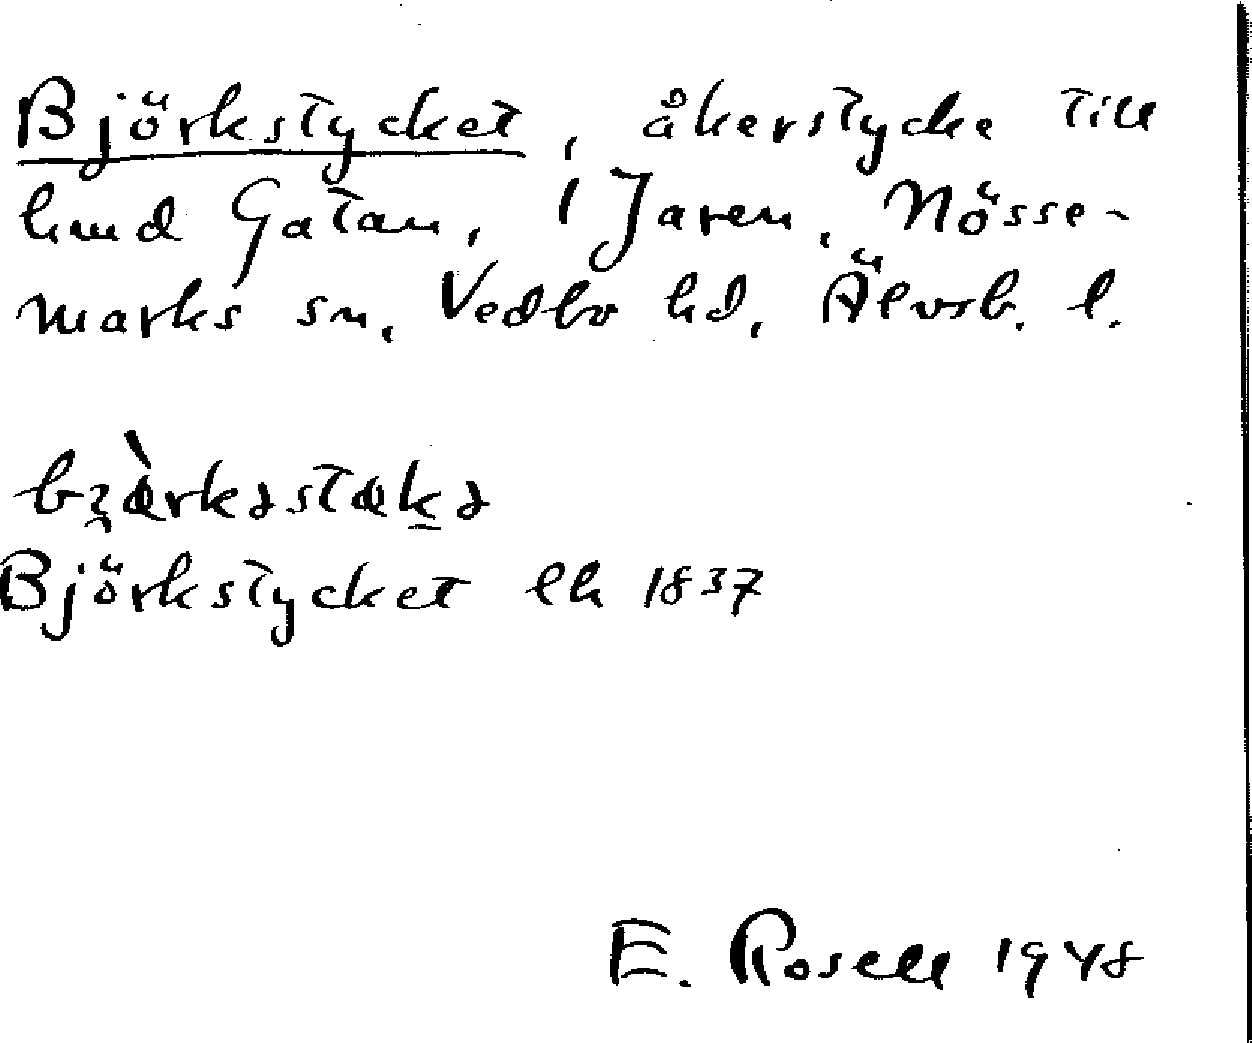 Björkstycket, åkerstycke till
hmd Gatan, 1 Jaren, Nösse-
marks sn, Vedbo hd, Älvsb. l.
Björkstycket lh 1837
E. Rosell 1948